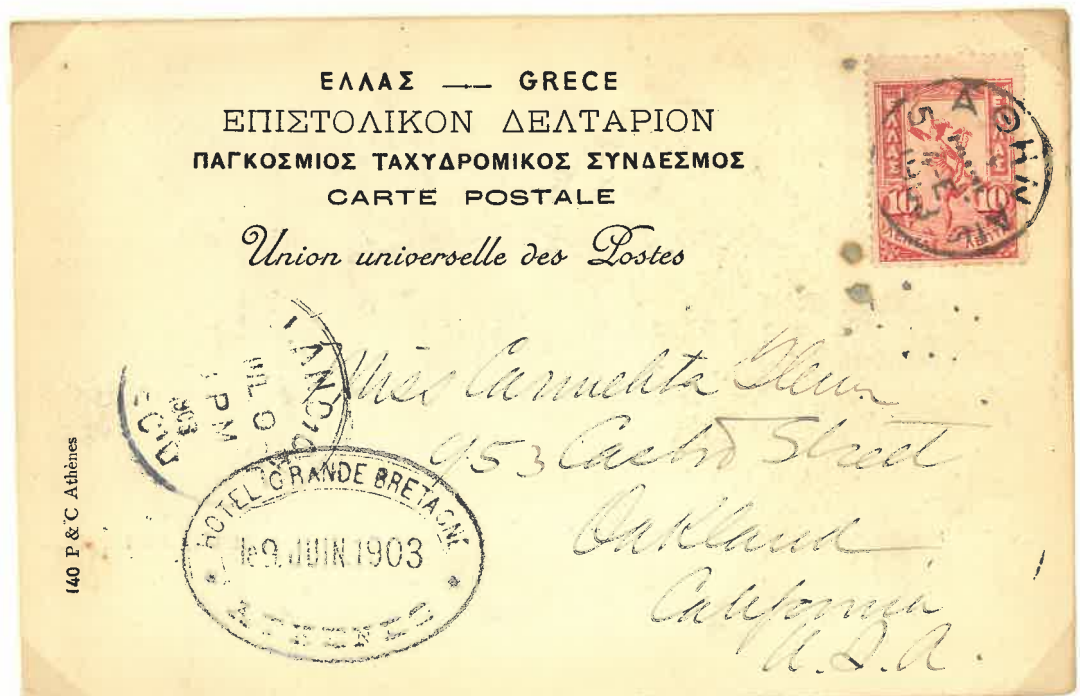 ΕΛΛΑΣ — GRECE
ΕΠΙΣΤΟΛΙΚΟΝ ΔΕΛΤΑΡΙΟΝ
ΠΑΓΚΟΣΜΙΟΣ ΤΑΧΥΔΡΟΜΙΚΟΣ ΣΥΝΔΕΣΜΟΣ
CARTE POSTALE
Union universelle des Postes
ΕΛΛΑΣ
10 10
Miss Carmelita
953 Castro Street
Oakland
California
U.S.A.
PM
HOTEL GRANDE BRETAGNE
le 9 JUIN 1903
ATHENES
140 P & C Athènes